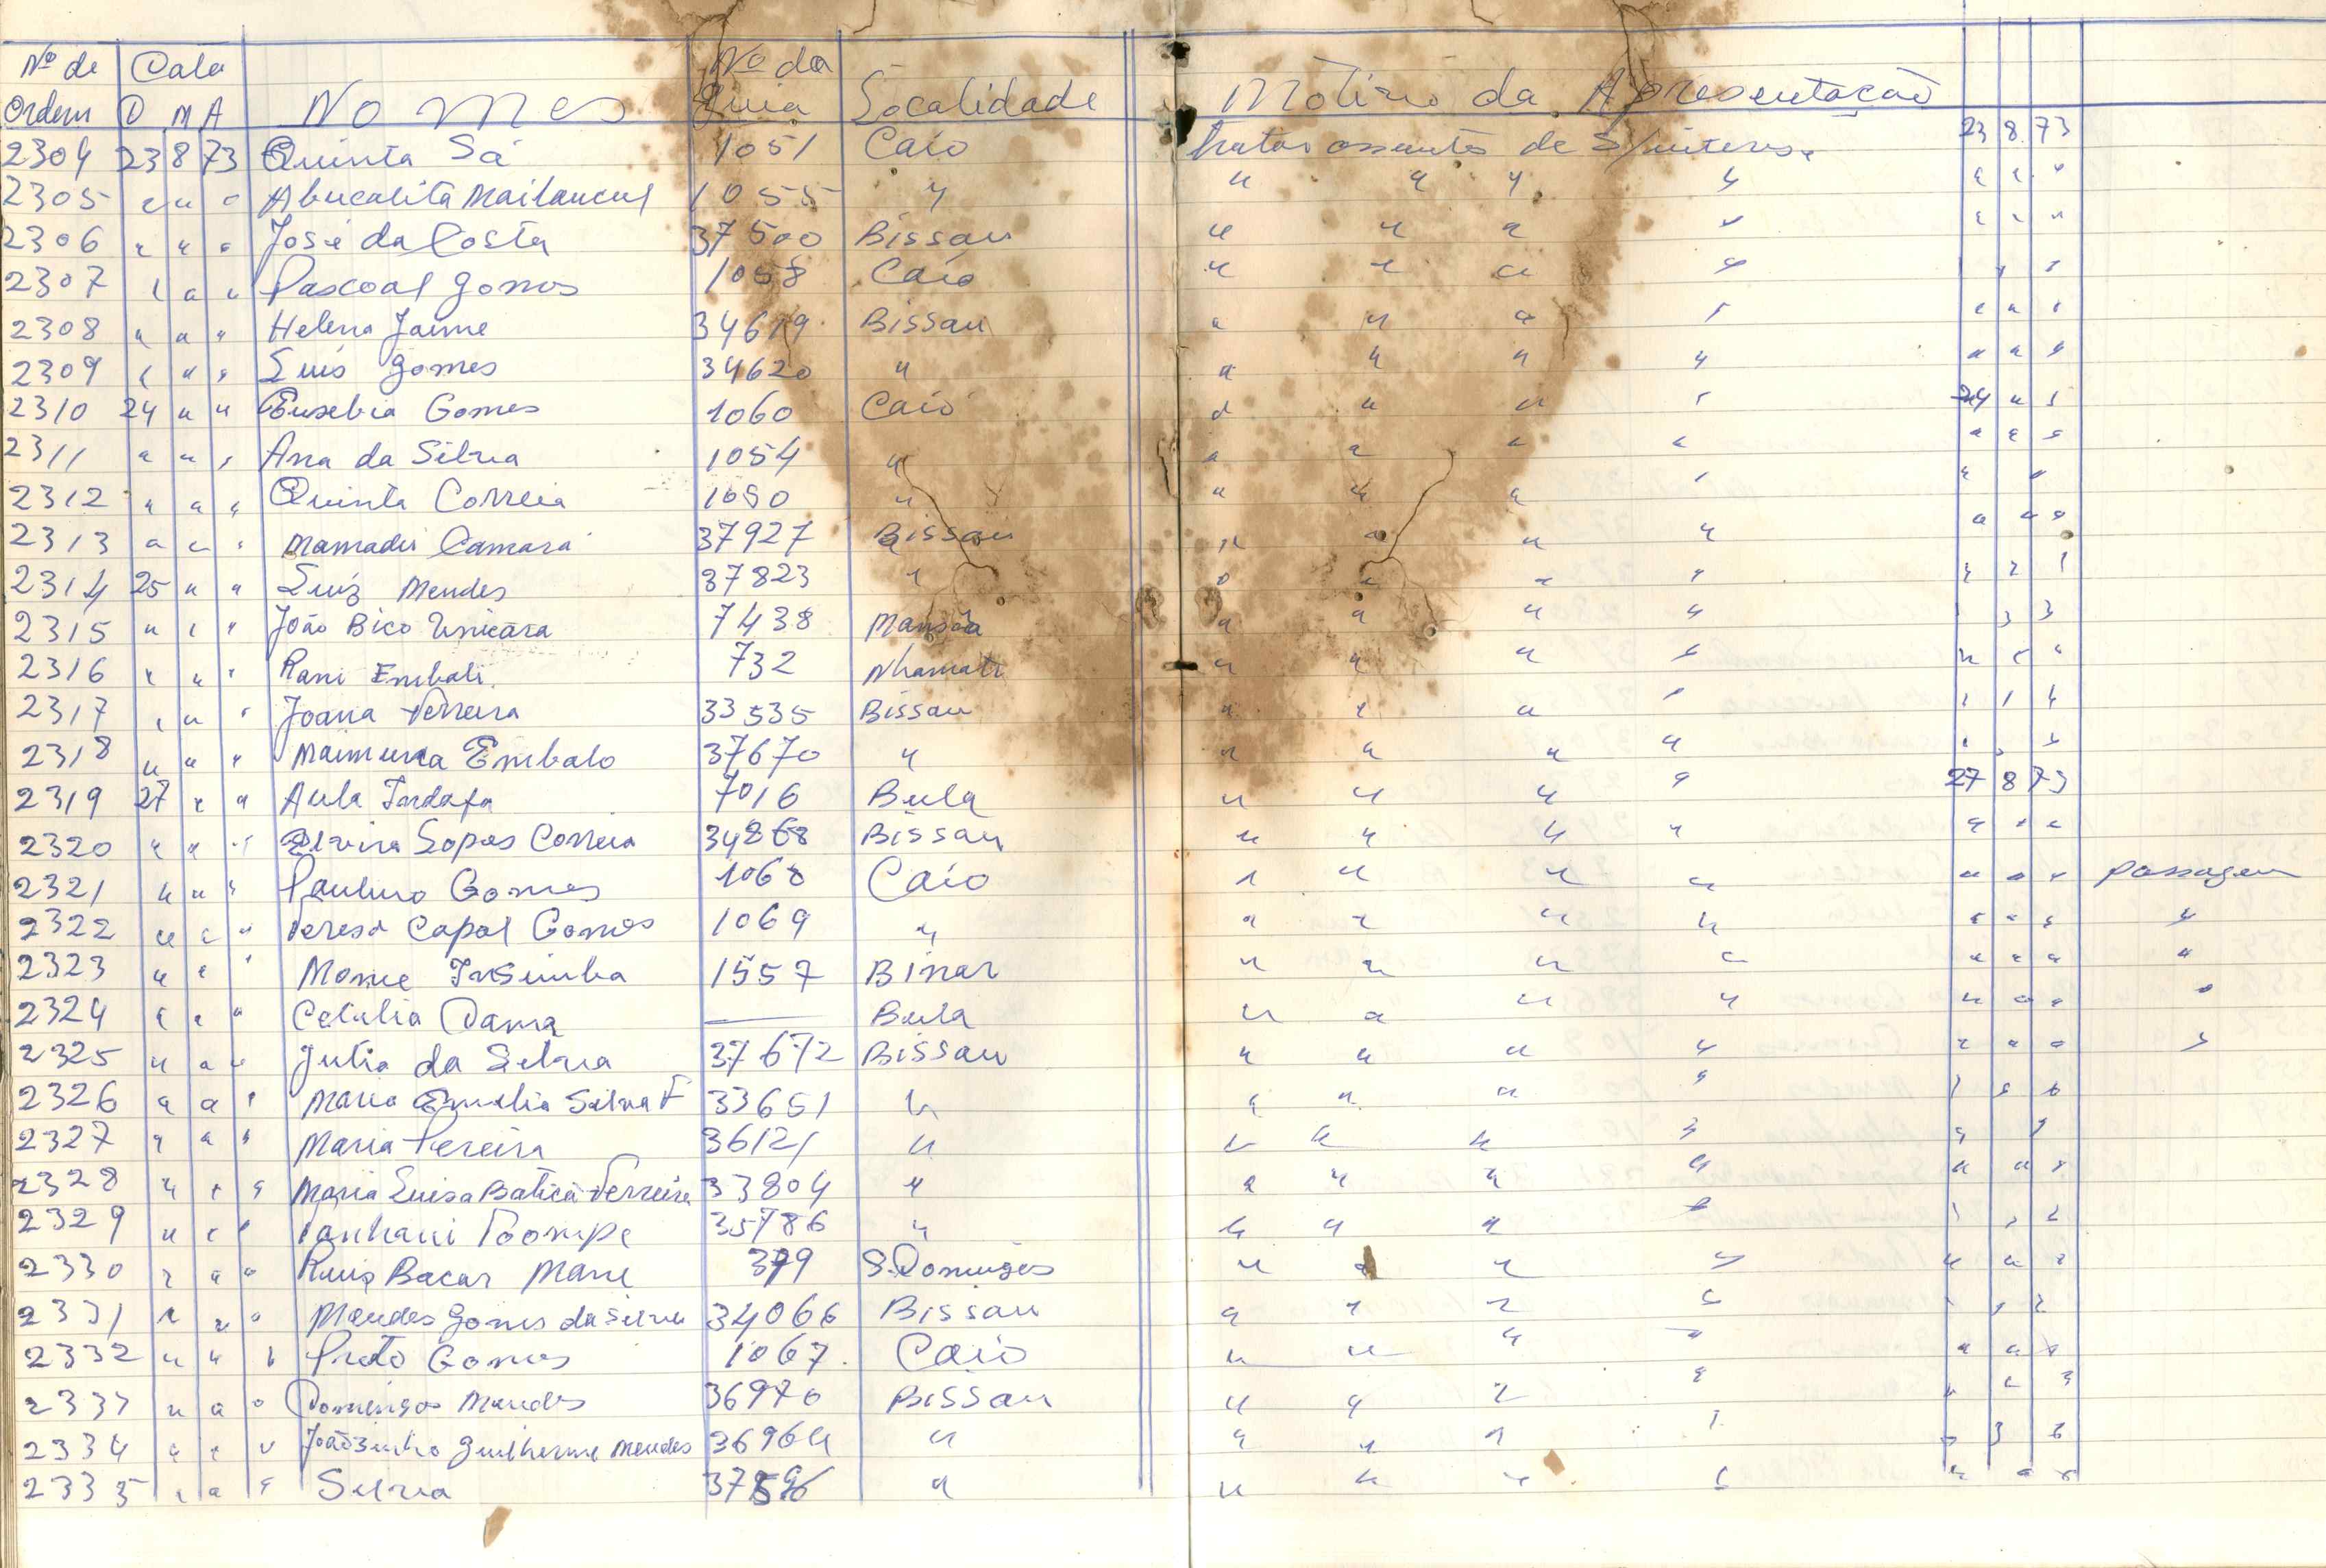 Nº de Data Nº da
Ordem D M A Nomes Guia Localidade Motivo da Apresentação
2304 23 8 73 Quinta Sá 1051 Caió tratar assuntos de s/interesse 23 8 73
2305 " " " Abucalita Mailancul 1055 " " " " " " " "
2306 " " " José da Costa 37500 Bissau " " " " " " "
2307 " " " Pascoal Gomes 1058 Caió " " " " " " "
2308 " " " Helena Jaime 34619 Bissau " " " " " " "
2309 " " " Luís Gomes 34620 " " " " " " " "
2310 24 " " Eusebia Gomes 1060 Caió " " " " 24 " "
2311 " " " Ana da Silva 1054 " " " " " " " "
2312 " " " Quinta Correia 1050 " " " " " " "
2313 " " " Mamadú Camará 37927 Bissau " " " " " " "
2314 25 " " Luiz Mendes 37823 " " " " " " " "
2315 " " " João Bico 7438 Mansôa " " " " " " "
2316 " " " Rani Embali 732 " " " " " " "
2317 " " " Joana Ferreira 33535 Bissau " " " " " " "
2318 " " " Maimuna Embalo 37670 " " " " " " " "
2319 27 " " Aula Indafa 7016 Bula " " " " 27 8 73
2320 " " " Elvira Lopes Correia 34868 Bissau " " " " " " "
2321 " " " Paulino Gomes 1068 Caió " " " " " " " passagem
2322 " " " Teresa Capal Gomes 1069 " " " " " " " " "
2323 " " " Insimba 1557 Binar " " " " " " " "
2324 " " " Dama — Bula " " " " " " " "
2325 " " " Julia da Silva 37672 Bissau " " " " " " " "
2326 " " " Maria Emilia Silva F 33651 " " " " " " " "
2327 " " " Maria Pereira 36121 " " " " " " "
2328 " " " Maria Luisa Baticã Ferreira 33804 " " " " " " " "
2329 " " " 35786 " " " " " " " "
2330 " " " Bacar Mane 379 S. Domingos " " " " " " "
2331 " " " Mendes Gomes da Silva 34066 Bissau " " " " " " "
2332 " " " Preto Gomes 1067 Caió " " " " " " "
2333 " " " Domingos Mendes 36970 Bissau " " " " " " "
2334 " " " Joãozinho Guilherme Mendes 36964 " " " " " " " "
2335 " " " Silva " " " " " " " "